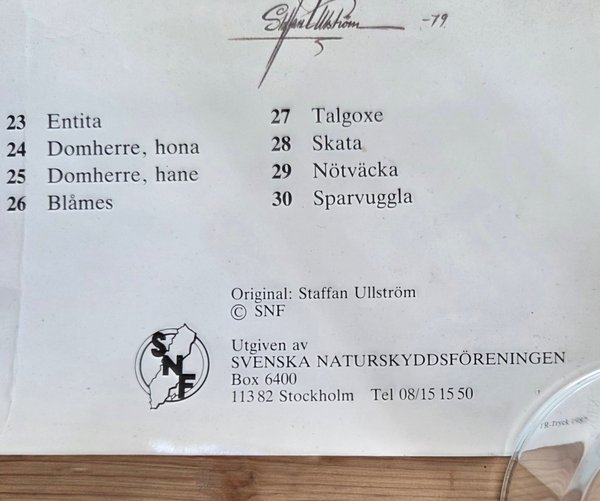 Staffan Ullström -79
23 Entita
24 Domherre, hona
25 Domherre, hane
26 Blåmes
27 Talgoxe
28 Skata
29 Nötväcka
30 Sparvuggla
Original: Staffan Ullström
© SNF
SNF
Utgiven av
SVENSKA NATURSKYDDSFÖRENINGEN
Box 6400
113 82 Stockholm Tel 08/15 15 50